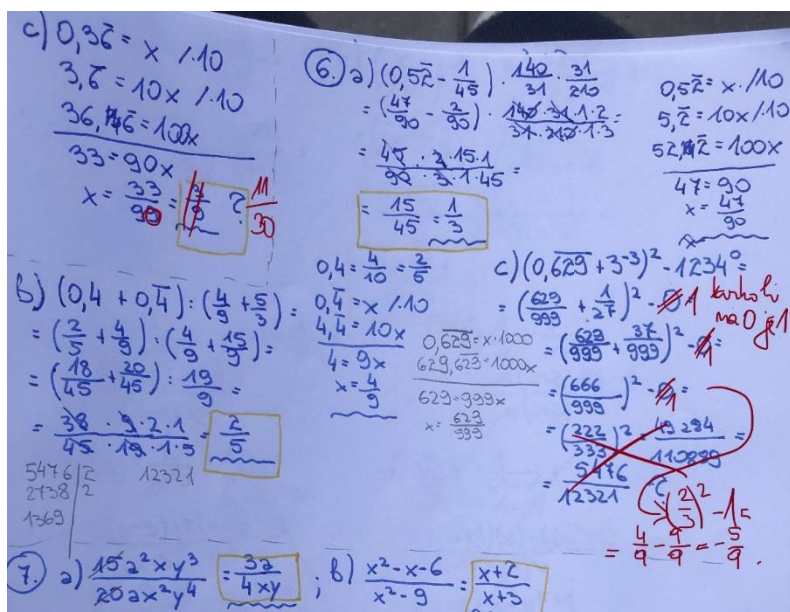 c) 0,36̅ = x /·10
3,6̅ = 10x /·10
36,6̅ = 100x
33 = 90x
x = 33/90 = 3/9 ? 11/30
6. a) (0,52̅ - 1/45) · 140/31 · 31/210
= (47/90 - 2/90) · 140·31·1·2/31·210·1·3 =
= 45·2·15·1/90·3·1·45 =
= 15/45 = 1/3
0,52̅ = x ·/10
5,2̅ = 10x /·10
52,2̅ = 100x
47 = 90
x = 47/90
b) (0,4 + 0,4̅) : (4/9 + 5/3) =
= (2/5 + 4/9) : (4/9 + 15/9) =
= (18/45 + 20/45) : 19/9 =
= 38·9·2·1/45·19·1·5 = 2/5
5476 | 2
2738 | 2
1369
12321
0,4 = 4/10 = 2/5
0,4̅ = x /·10
4,4̅ = 10x
4 = 9x
x = 4/9
0,6̅2̅9̅ = x·1000
629,6̅2̅9̅ = 1000x
629 = 999x
x = 629/999
c) (0,6̅2̅9̅ + 3⁻³)² - 1234⁰ =
= (629/999 + 1/27)² - 0 1
na 0 je 1
= (629/999 + 37/999)² - 1
= (666/999)² - 1 =
= (222/333)² = 49284/110889 =
= 5476/12321 ?
(2/3)² - 1 =
= 4/9 - 9/9 = -5/9.
7. a) 15a²xy³/20ax²y⁴ = 3a/4xy ; b) x²-x-6/x²-9 = x+2/x+3